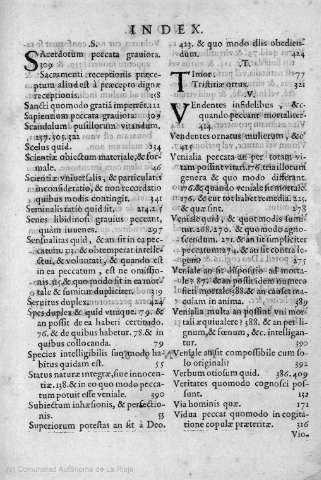 INDEX.
.S.
SAcerdotum peccata grauiora.
309
Sacramenti receptionis præce-
ptum aliud est à præcepto dignæ
receptionis. 218
Sancti quomodo gratiã impetrẽt. 112
Sapientium peccata grauiora: 309
Scandalum pusillorum vitandum.
257.305.321
Scelus quid. 234
Scientiæ obiectum materiale, & for-
male. 46
Scientiæ vniuersalis, & particularis
inconsideratio, & non recordatio
quibus modis contingit. 341
Seminalis ratio quid sit.
Senes libidinosi grauius peccant,
quàm iuuenes. 297
Sensualitas quid, & an sit in ea pec-
catum. & obtemperat intelle-
ctui, & voluntati, & quando est
in ea peccatum, est ne omissio-
nis. & quo modo sit in ea mor-
tale & sumitur dupliciter. 139
Serpitus duplex. 424
Spes duplex & quid vtraque. 79. &
an possit de ea haberi certitudo.
76. & de quibus habetur. 78. & in
quibus collocanda. 79
Species intelligibilis suo modo ha-
bitus quidam est. 55
Status naturæ integræ, siue innocen-
tiæ. 138. & in eo quo modo pecca-
tum potuit esse veniale. 390
Subiectum inhæsionis, & perfectio-
nis. 53
Superiorum potestas an sit à Deo.
423. & quo modo illis obedien-
dum. 424
.T.
TImor. 77
Tristitiæ ortus. 321
.V.
VEndentes infidelibus, &c.
quando peccant mortaliter.
424
Vendentes ornatus mulierum, &c.
425
Venialia peccata an per totam vi-
tam possint vitari. 176. tria illorum
genera & quo modo differant.
176. & quando veniale sit mortale.
176. & eic tot habet remedia 225.
& quæ sint. 278
Veniale quid, & quot modis sumi-
tur. 268. 270. & quomodo agno-
scendum. 271. & an sit simpliciter
peccatum 274. & an sit contra le-
gem? 275
Veniale an sit dispositio ad morta-
le? 87. & an possit idem numero
fieri mortale? 388. & an causet ma-
culam in anima. 389
Venialia multa an possint vni mor-
tali æquiualere? 388. & an per li-
gnum, & fœnum, &c. intelligan-
tur. 390
Veniale an sit compossibile cum so-
lo originali? 392
Verbum otiosum quid. 386.409
Veritates quomodo cognosci pos-
sunt. 132
Via hominis quæ. 171
Vidua peccat quomodo in cogita-
tione copulæ præteritæ. 316
Vio-
(c) Comunidad Autónoma de La Rioja